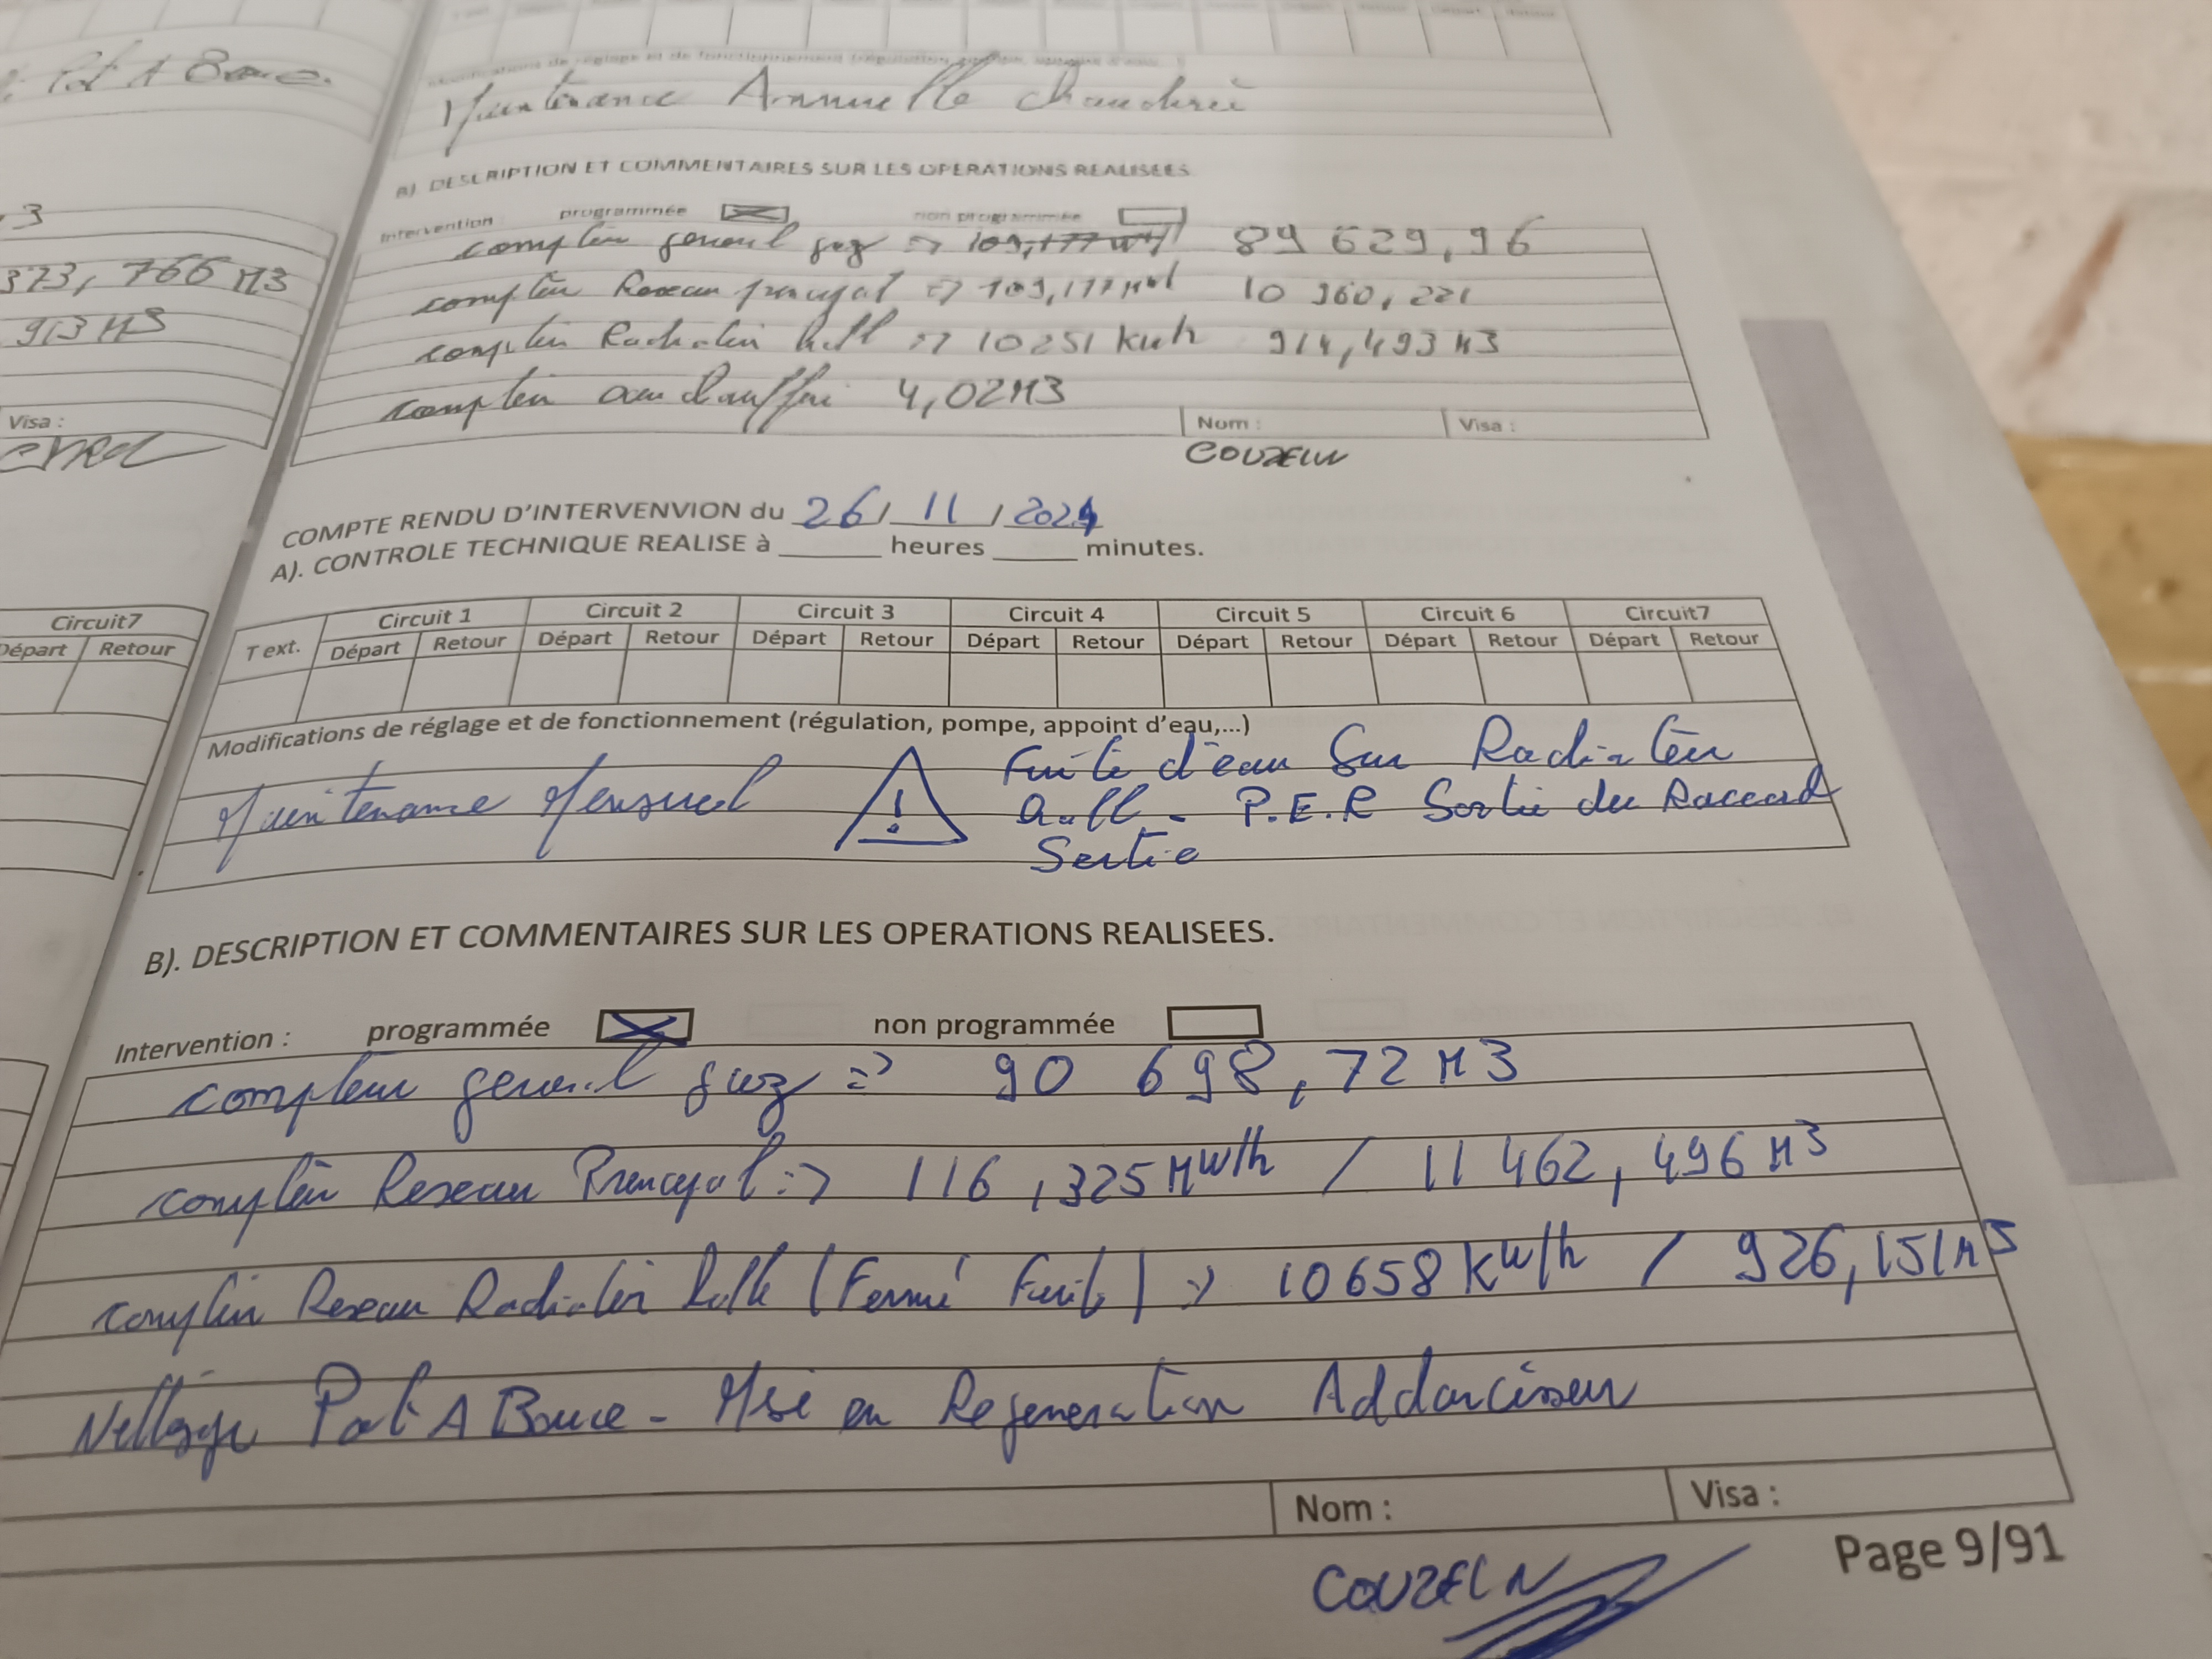 Pot A Boue.
3
373,766 M3
913 M3
Visa :
Circuit7
Départ Retour
Maintenance Annuelle chaudierie
B) DESCRIPTION ET COMMENTAIRES SUR LES OPERATIONS REALISEES
Intervention programmée non programmée
compteur general gaz => 109,177 89 629,96
compteur Reseau principal => 109,177 Mwh 10 960,221
compteur Radiateur hall => 10251 kwh 914,493 M3
compteur eau chaufferie 4,02 M3
Nom : Visa :
COUZELIN
COMPTE RENDU D'INTERVENVION du 26/ 11 / 2024
A). CONTROLE TECHNIQUE REALISE à heures minutes.
T ext. Circuit 1 Circuit 2 Circuit 3 Circuit 4 Circuit 5 Circuit 6 Circuit7
Départ Retour Départ Retour Départ Retour Départ Retour Départ Retour Départ Retour Départ Retour
Modifications de réglage et de fonctionnement (régulation, pompe, appoint d'eau,...)
Maintenance Mensuel ! Fuite d'eau Sur Radiateur
Hall - P.E.R Sortie du Raccord
Sertie
B). DESCRIPTION ET COMMENTAIRES SUR LES OPERATIONS REALISEES.
Intervention : programmée non programmée
compteur general gaz => 90 698,72 M3
compteur Reseau Principal => 116,325 Mw/h / 11 462,496 M3
compteur Reseau Radiateur hall (Fermé Fuite) => 10658 kw/h / 926,151 M3
Nettoyage Pot A Boue - Mise en Regeneration Addoucisseur
Nom : Visa :
COUZELIN
Page 9/91